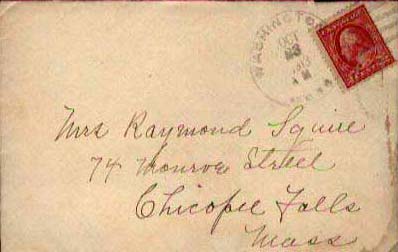 WASHINGTON
OCT
23
Mrs Raymond Squire
74 Monroe Street
Chicopee Falls
Mass